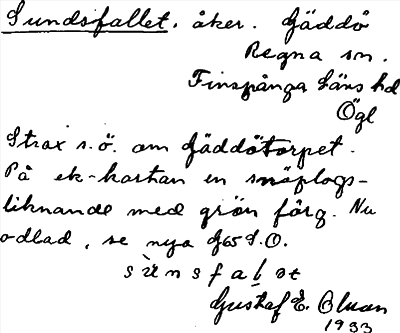 Sundsfallet, åker. Gäddö
Regna sn.
Finspånga läns hd
Ögl
Strax s.ö. om Gäddötorpet.
På ek-kartan en snöplogs-
liknande med grön färg. Nu
odlad, se nya G65 S.O.
sùnsfalet
Gustaf E. Olsson
1933